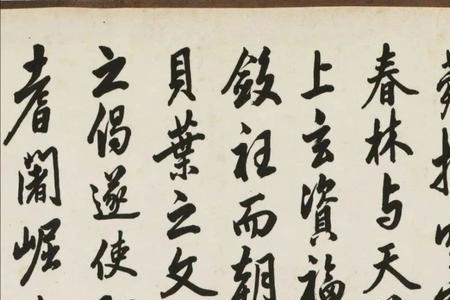 春林与天
上玄資福
斂衽而朝
貝葉之文
之偈遂使
耆闍崛